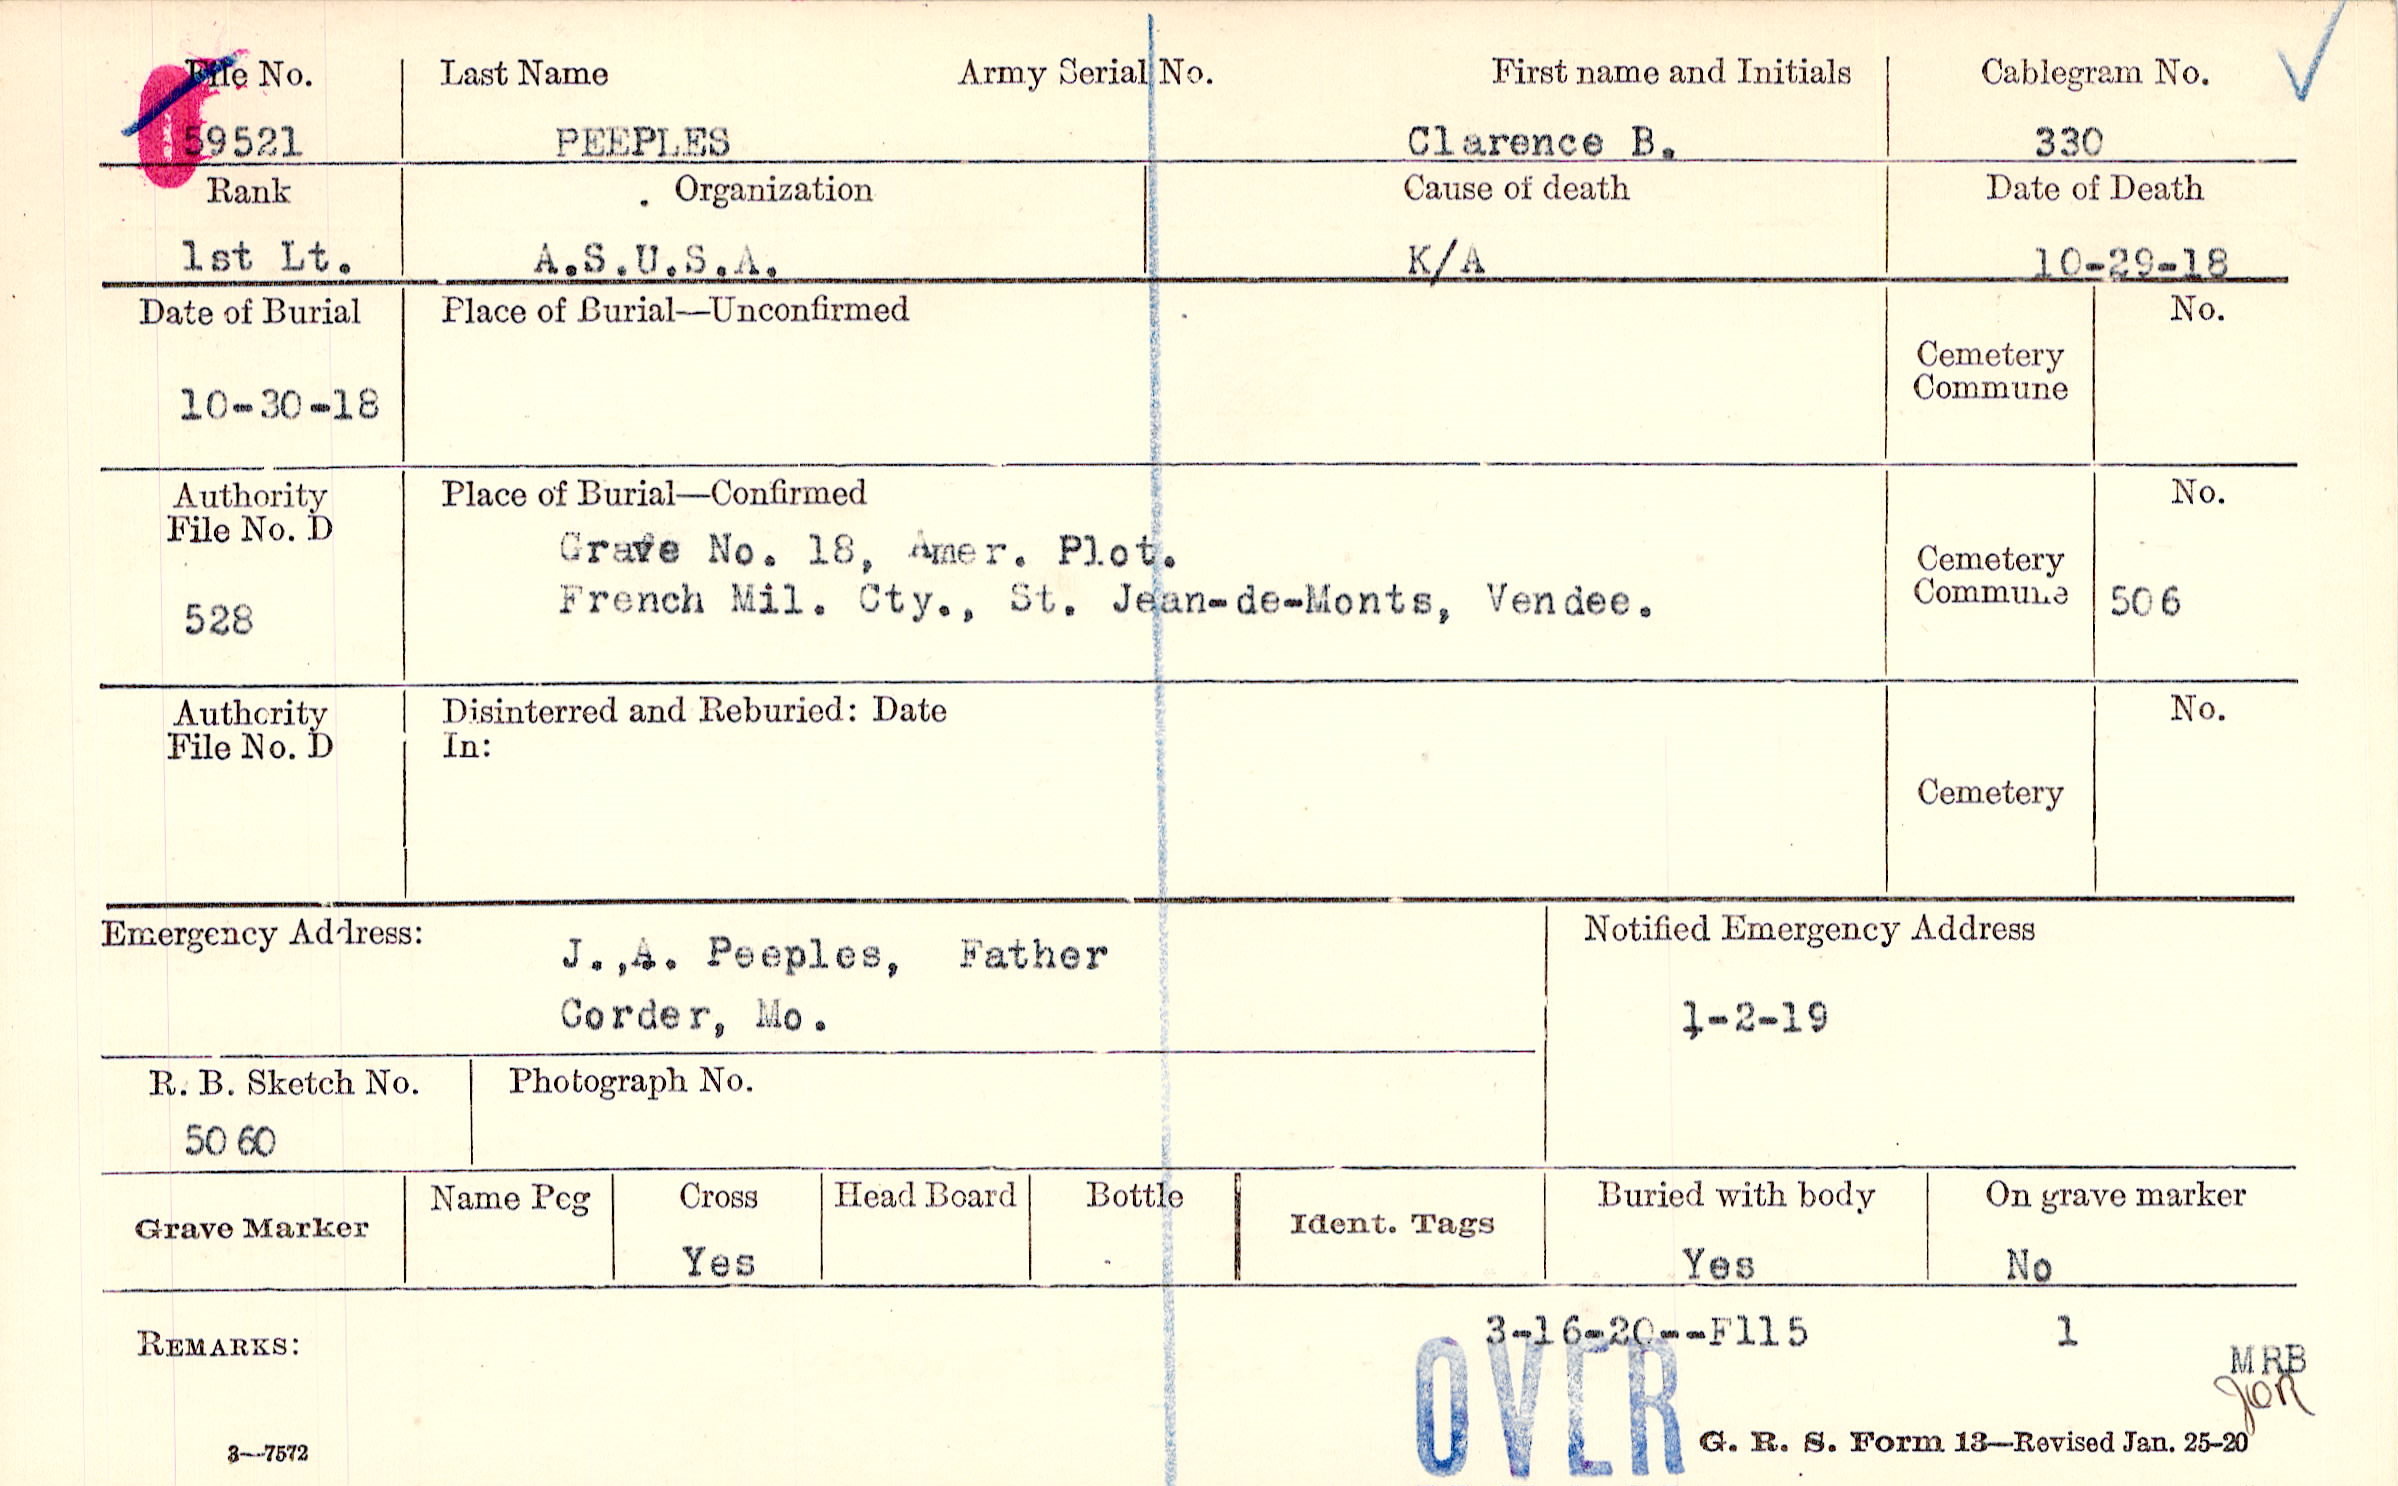 File No. Last Name Army Serial No. First name and Initials Cablegram No.
59521 PEEPLES Clarence B. 330
Rank . Organization Cause of death Date of Death
1st Lt. A.S.U.S.A. K/A 10-29-18
Date of Burial Place of Burial—Unconfirmed No.
Cemetery
Commune
10-30-18
Authority Place of Burial—Confirmed No.
File No. D
Grave No. 18, Amer. Plot.
Cemetery
French Mil. Cty., St. Jean-de-Monts, Vendee.
Commune 506
528
Authority Disinterred and Reburied: Date No.
File No. D In:
Cemetery
Emergency Address: Notified Emergency Address
J.,A. Peeples, Father
Corder, Mo. 1-2-19
R. B. Sketch No. Photograph No.
5060
Grave Marker Name Peg Cross Head Board Bottle Ident. Tags Buried with body On grave marker
Yes Yes No
REMARKS: 3-16-20--F115 1
MRB
OVER
3—7572 G. R. S. Form 13—Revised Jan. 25-20